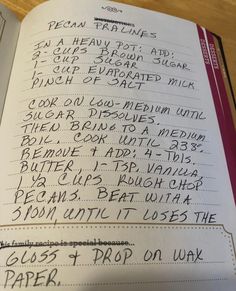 PECAN PRALINES
IN A HEAVY POT: ADD:
2- CUPS BROWN SUGAR
1- CUP SUGAR
1- CUP EVAPORATED MILK
PINCH OF SALT
COOK ON LOW-MEDIUM UNTIL
SUGAR DISSOLVES.
THEN BRING TO A MEDIUM
BOIL. COOK UNTIL 238°.
REMOVE & ADD: 4-Tbls.
BUTTER, 1-TSP. VANILLA,
1/2 CUPS ROUGH CHOP
PECANS. BEAT WITH A
SPOON UNTIL IT LOSES THE
this family recipe is special because...
GLOSS & DROP ON WAX
PAPER.
DESSERTS